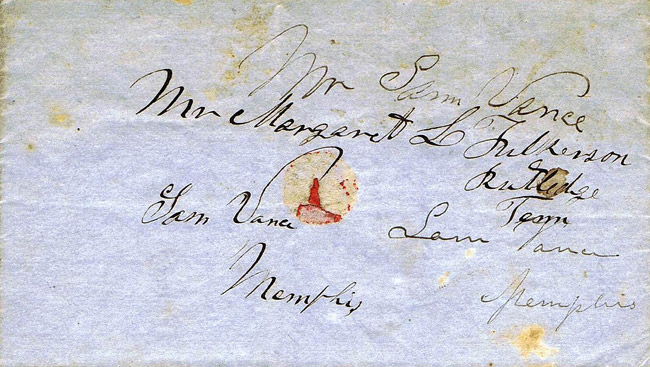 Mr Sam Vance
Mrs Margaret L Fulkerson
Rutledge
Tenn
Sam Vance
Sam Vance
Memphis
Memphis